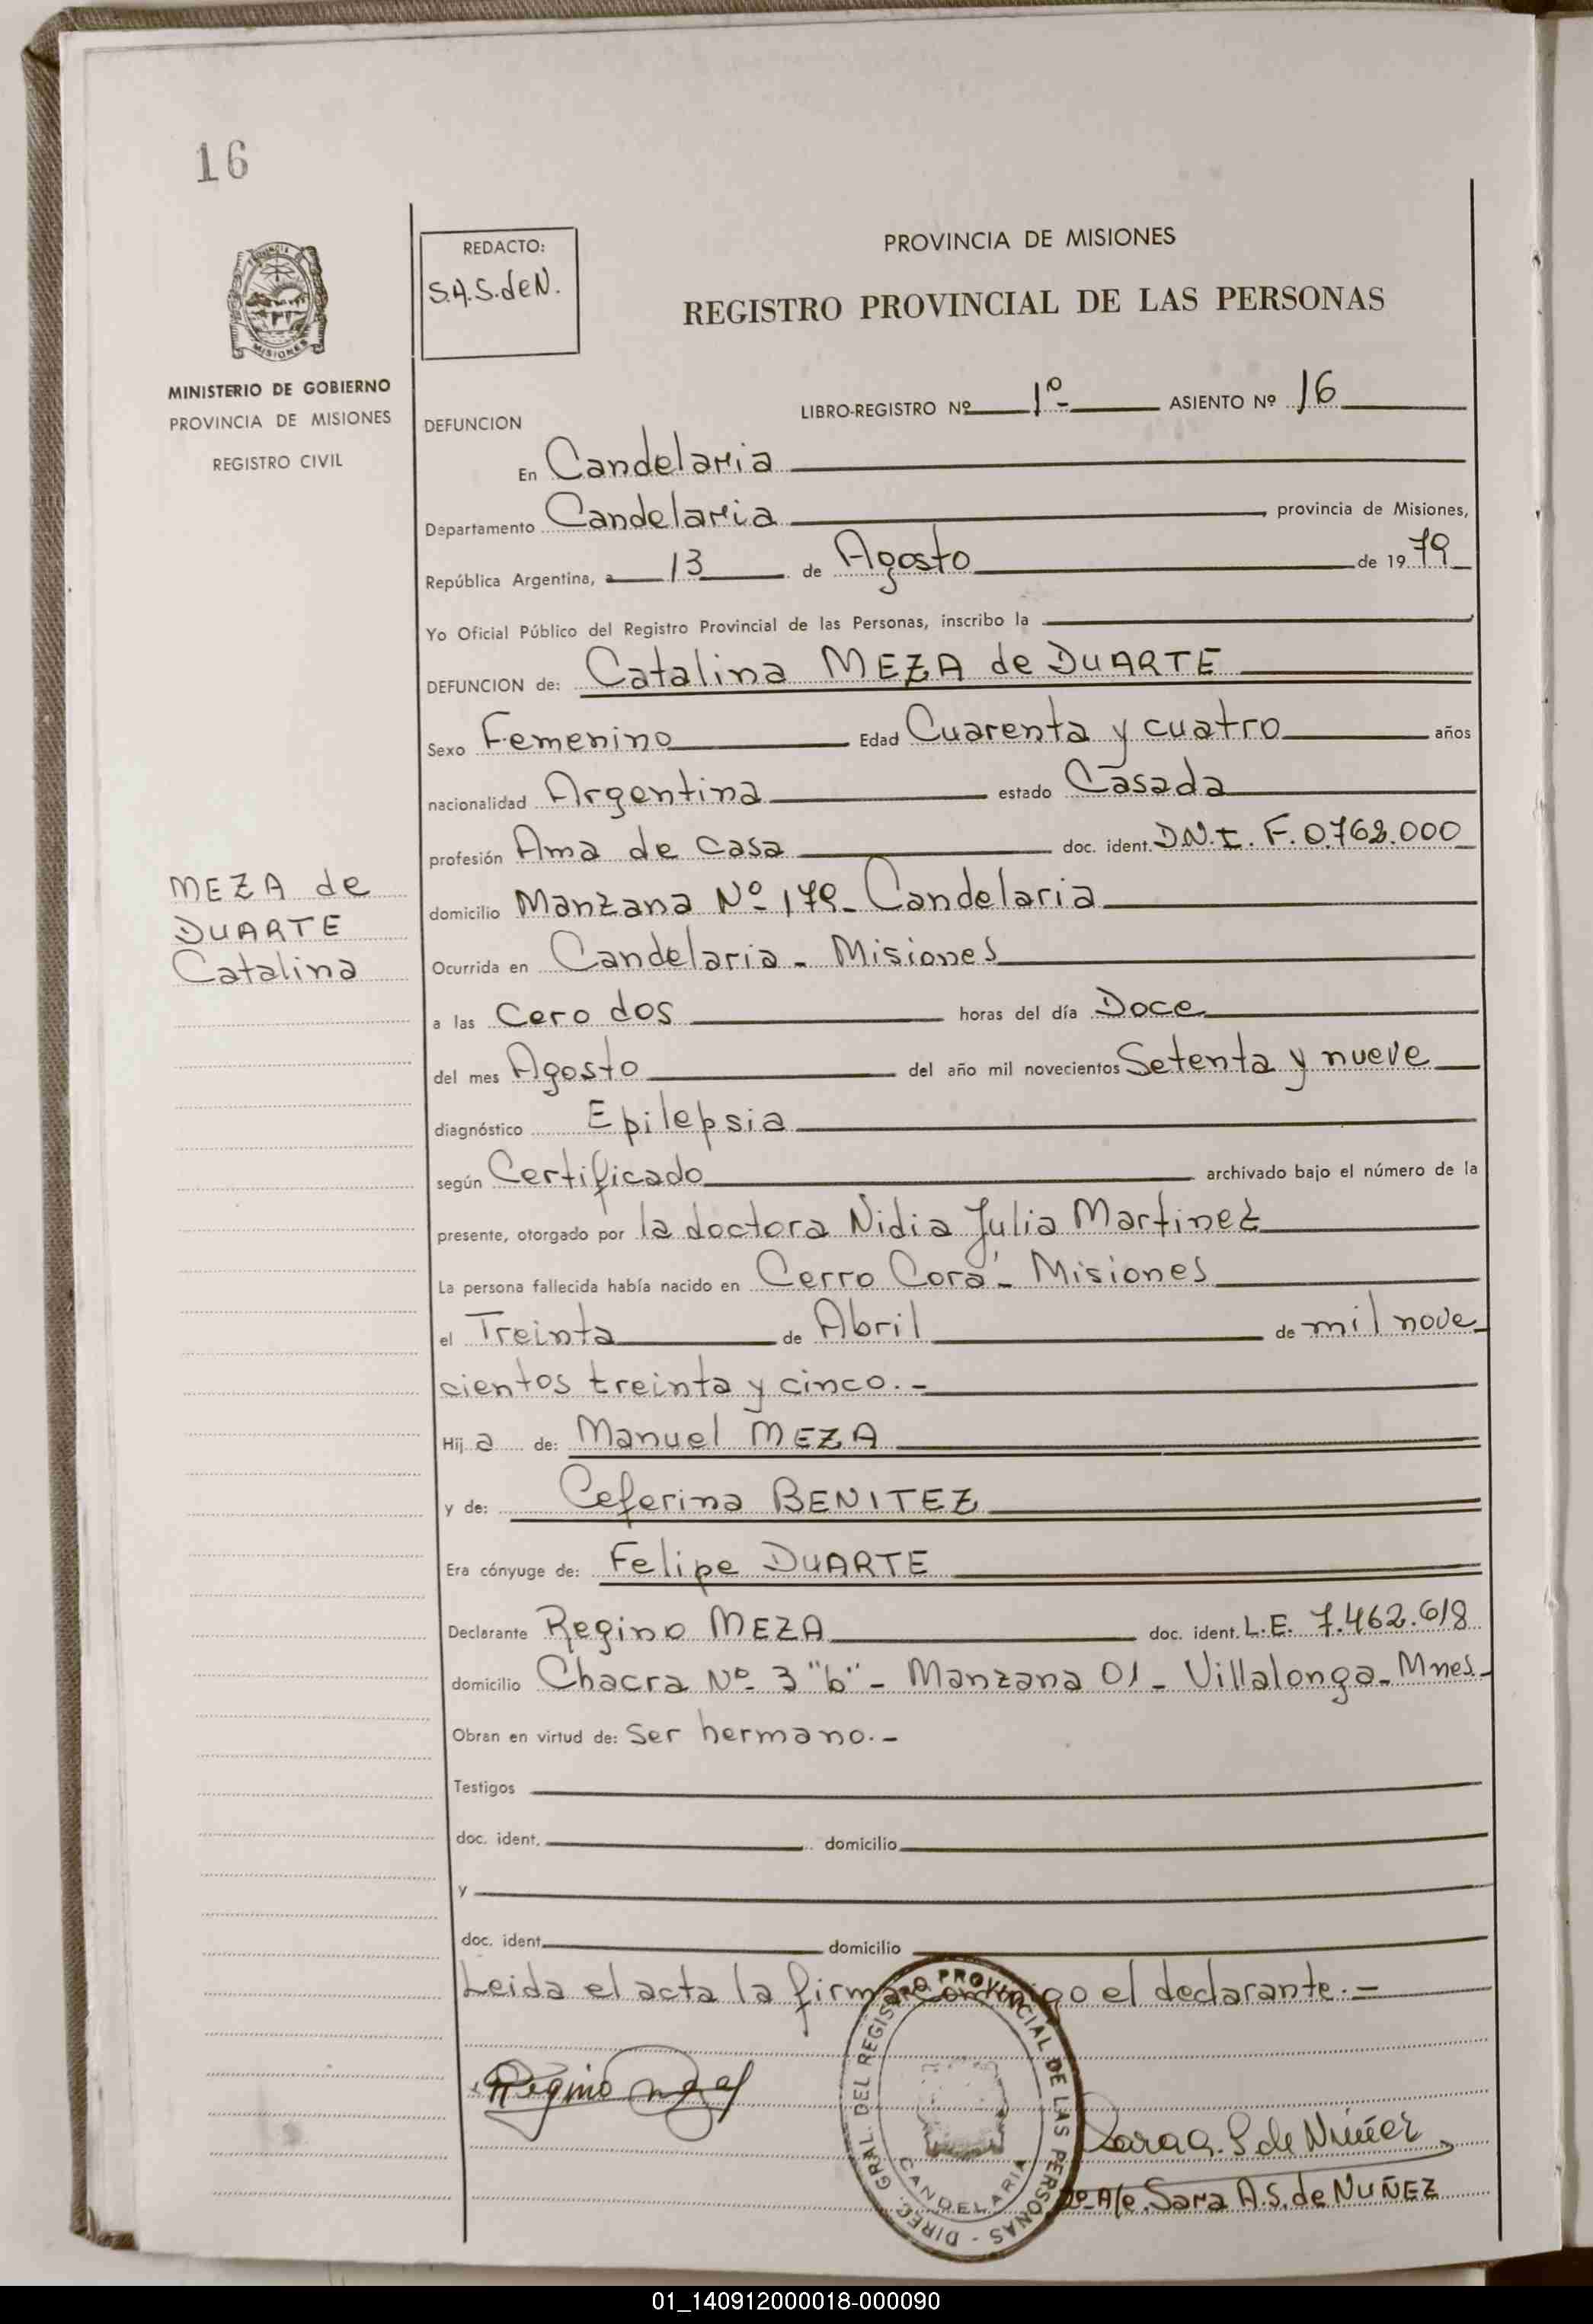 16
REDACTO:
S.A.S. de N.
PROVINCIA DE MISIONES
REGISTRO PROVINCIAL DE LAS PERSONAS
PROVINCIA
MISIONES
MINISTERIO DE GOBIERNO
PROVINCIA DE MISIONES
REGISTRO CIVIL
LIBRO-REGISTRO Nº 1º- ASIENTO Nº 16
DEFUNCION
En Candelaria
Departamento Candelaria provincia de Misiones,
República Argentina, a 13 de Agosto de 1979
Yo Oficial Público del Registro Provincial de las Personas, inscribo la
DEFUNCION de: Catalina MEZA de DUARTE
Sexo Femenino Edad Cuarenta y cuatro años
nacionalidad Argentina estado Casada
profesión Ama de casa doc. ident. D.N.I. F. 0.762.000
MEZA de
DUARTE
Catalina
domicilio Manzana Nº 179- Candelaria
Ocurrida en Candelaria - Misiones
a las Cero dos horas del día Doce
del mes Agosto del año mil novecientos Setenta y nueve
diagnóstico Epilepsia
según Certificado archivado bajo el número de la
presente, otorgado por la doctora Nidia Julia Martinez
La persona fallecida había nacido en Cerro Corá - Misiones
el Treinta de Abril de mil nove
cientos treinta y cinco.-
Hija de: Manuel MEZA
y de: Ceferina BENITEZ
Era cónyuge de: Felipe DUARTE
Declarante Regino MEZA doc. ident. L.E. 7.462.618
domicilio Chacra Nº 3 "b" - Manzana 01 - Villalonga - Mnes.-
Obran en virtud de: Ser hermano.-
Testigos
doc. ident. domicilio
y
doc. ident. domicilio
Leida el acta la firma conmigo el declarante.=
DIREC. GRAL. DEL REGISTRO PROVINCIAL DE LAS PERSONAS -
CANDELARIA
Regino Meza
Sara A. S de Núñez
Sara A.S. de NUÑEZ
01_140912000018-000090